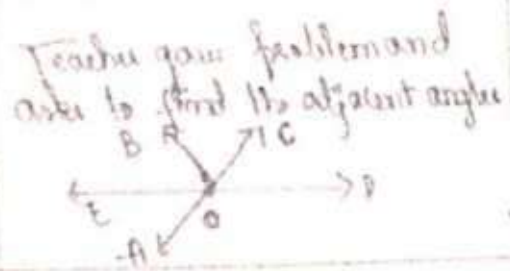 Teacher gave problem and
asks to find the adjacent angles
B C
E O D
A